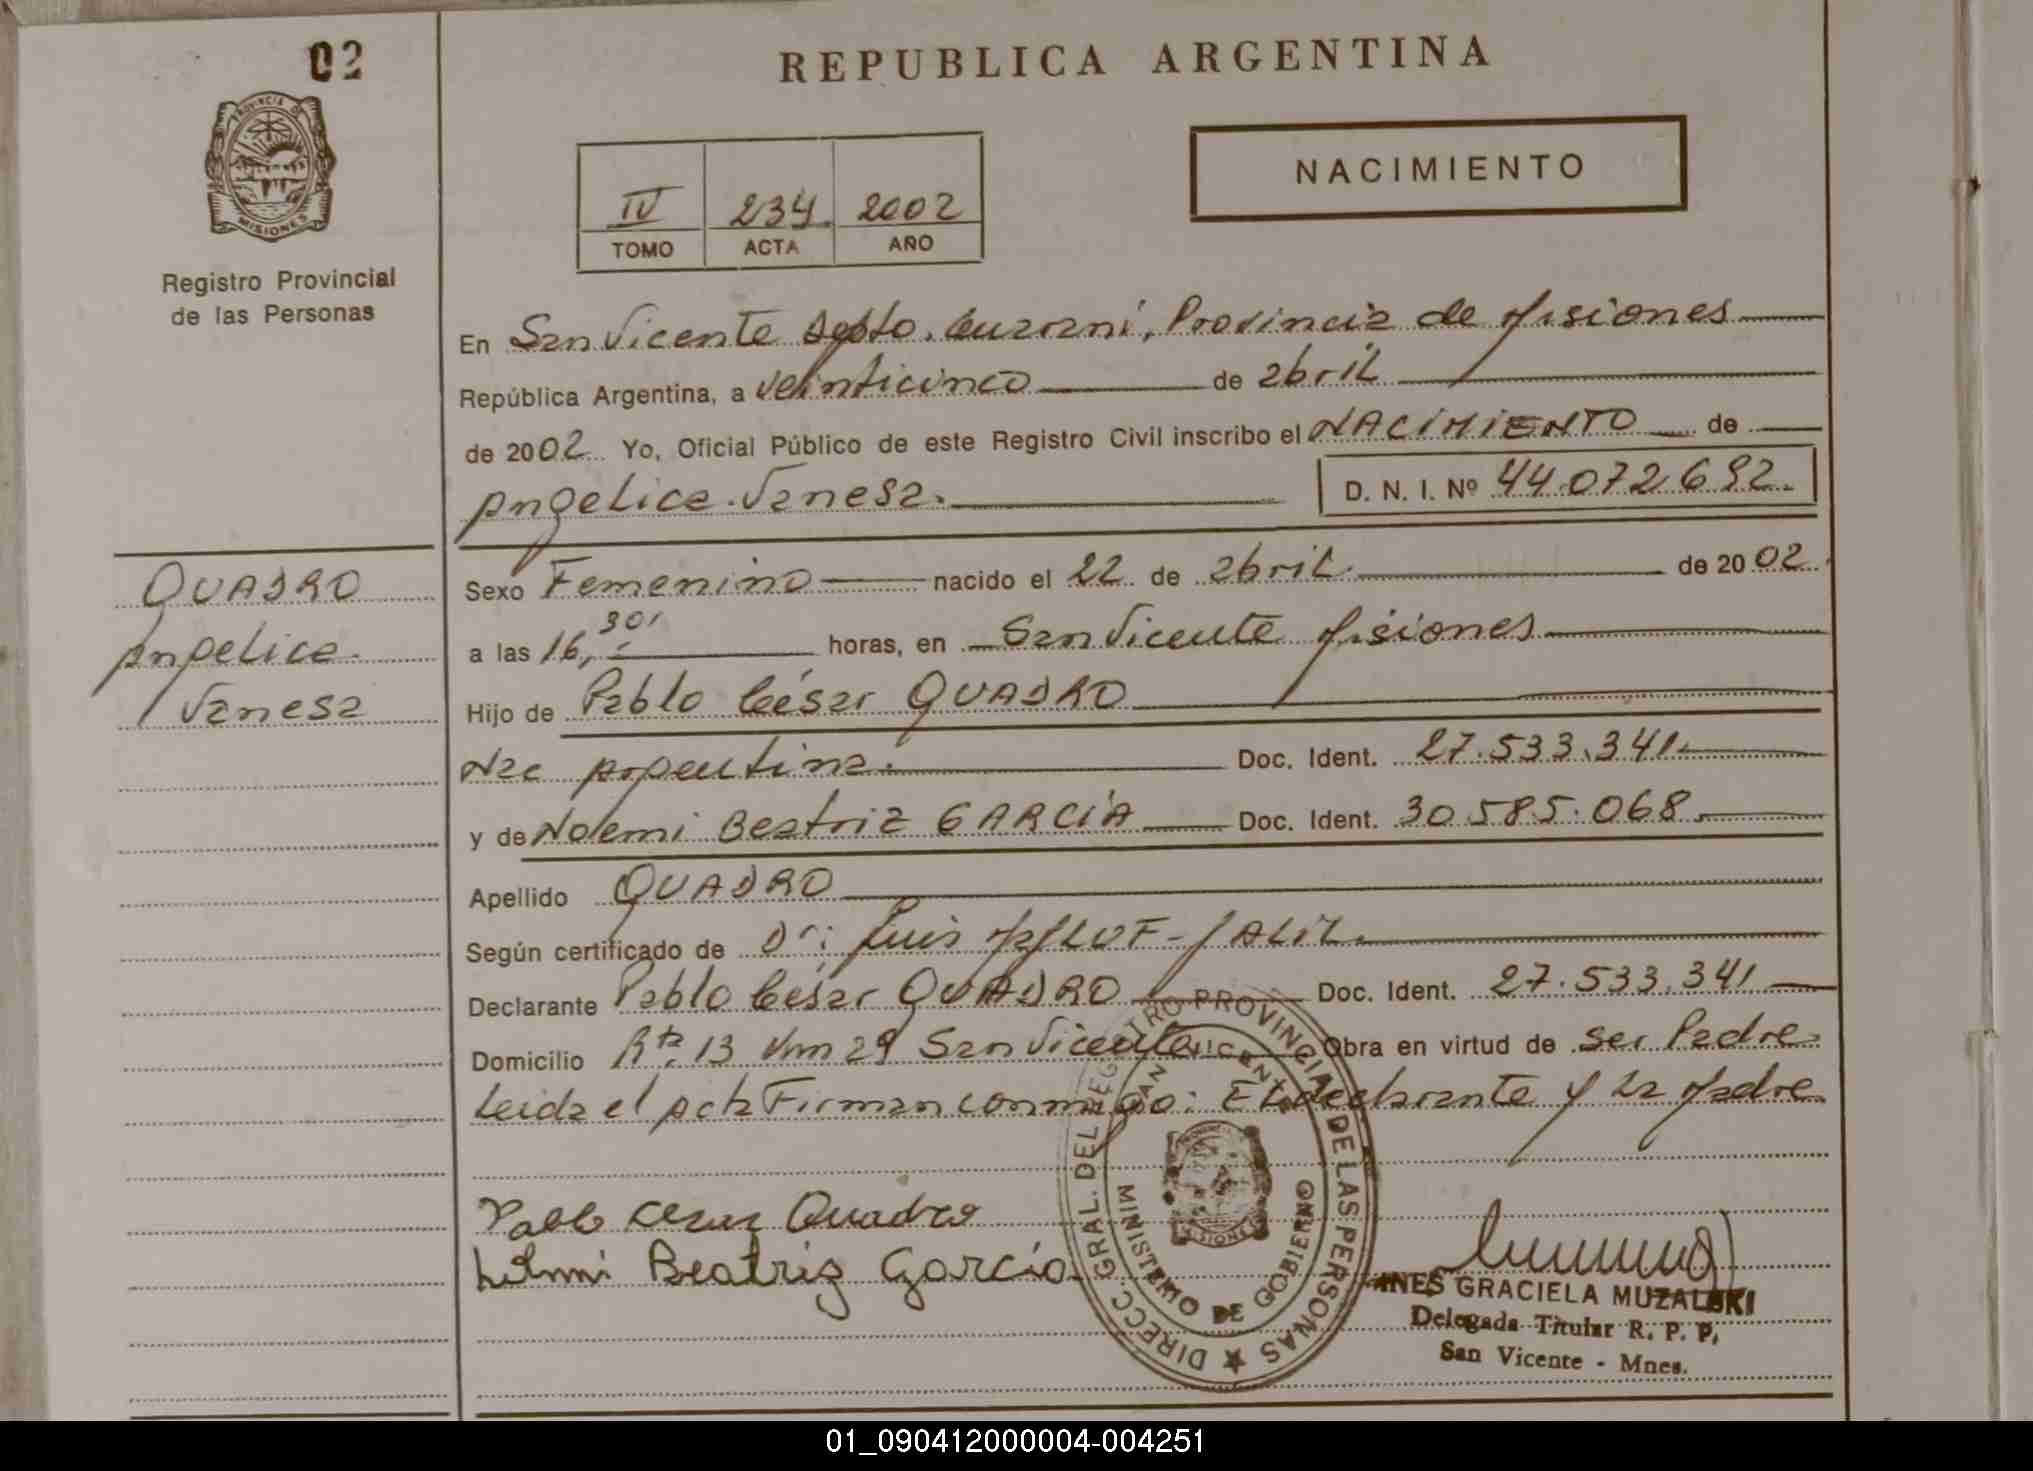 02
REPUBLICA ARGENTINA
PROVINCIA DE
MISIONES
Registro Provincial
de las Personas
NACIMIENTO
IV 234 2002
TOMO ACTA AÑO
En San Vicente Dpto. Guaraní, Provincia de Misiones
República Argentina, a veinticinco de abril
de 2002 Yo, Oficial Público de este Registro Civil inscribo el NACIMIENTO de
Angelica Vanesa.
D. N. I. Nº 44.072.692.
QUADRO
Angelica
Vanesa
Sexo Femenino nacido el 22 de abril de 2002
a las 16,30' horas, en San Vicente Misiones
Hijo de Pablo César QUADRO
Nac Argentina. Doc. Ident. 27.533.341.
y de Noemi Beatriz GARCIA Doc. Ident. 30.585.068
Apellido QUADRO
Según certificado de Dr: Luis JALIL.
Declarante Pablo César QUADRO Doc. Ident. 27.533.341
Domicilio Rta. 13 Km 29 San Vicente Obra en virtud de ser Padre
Leida el acta Firman conmigo: El declarante y la Madre
Pablo Cesar Quadro
Beatriz Garcia
DIRECC. GRAL. DEL REGISTRO PROVINCIAL DE LAS PERSONAS
SAN VICENTE
MINISTERIO DE GOBIERNO
MISIONES
INES GRACIELA MUZALSKI
Delegada Titular R. P. P.
San Vicente - Mnes.
01_090412000004-004251